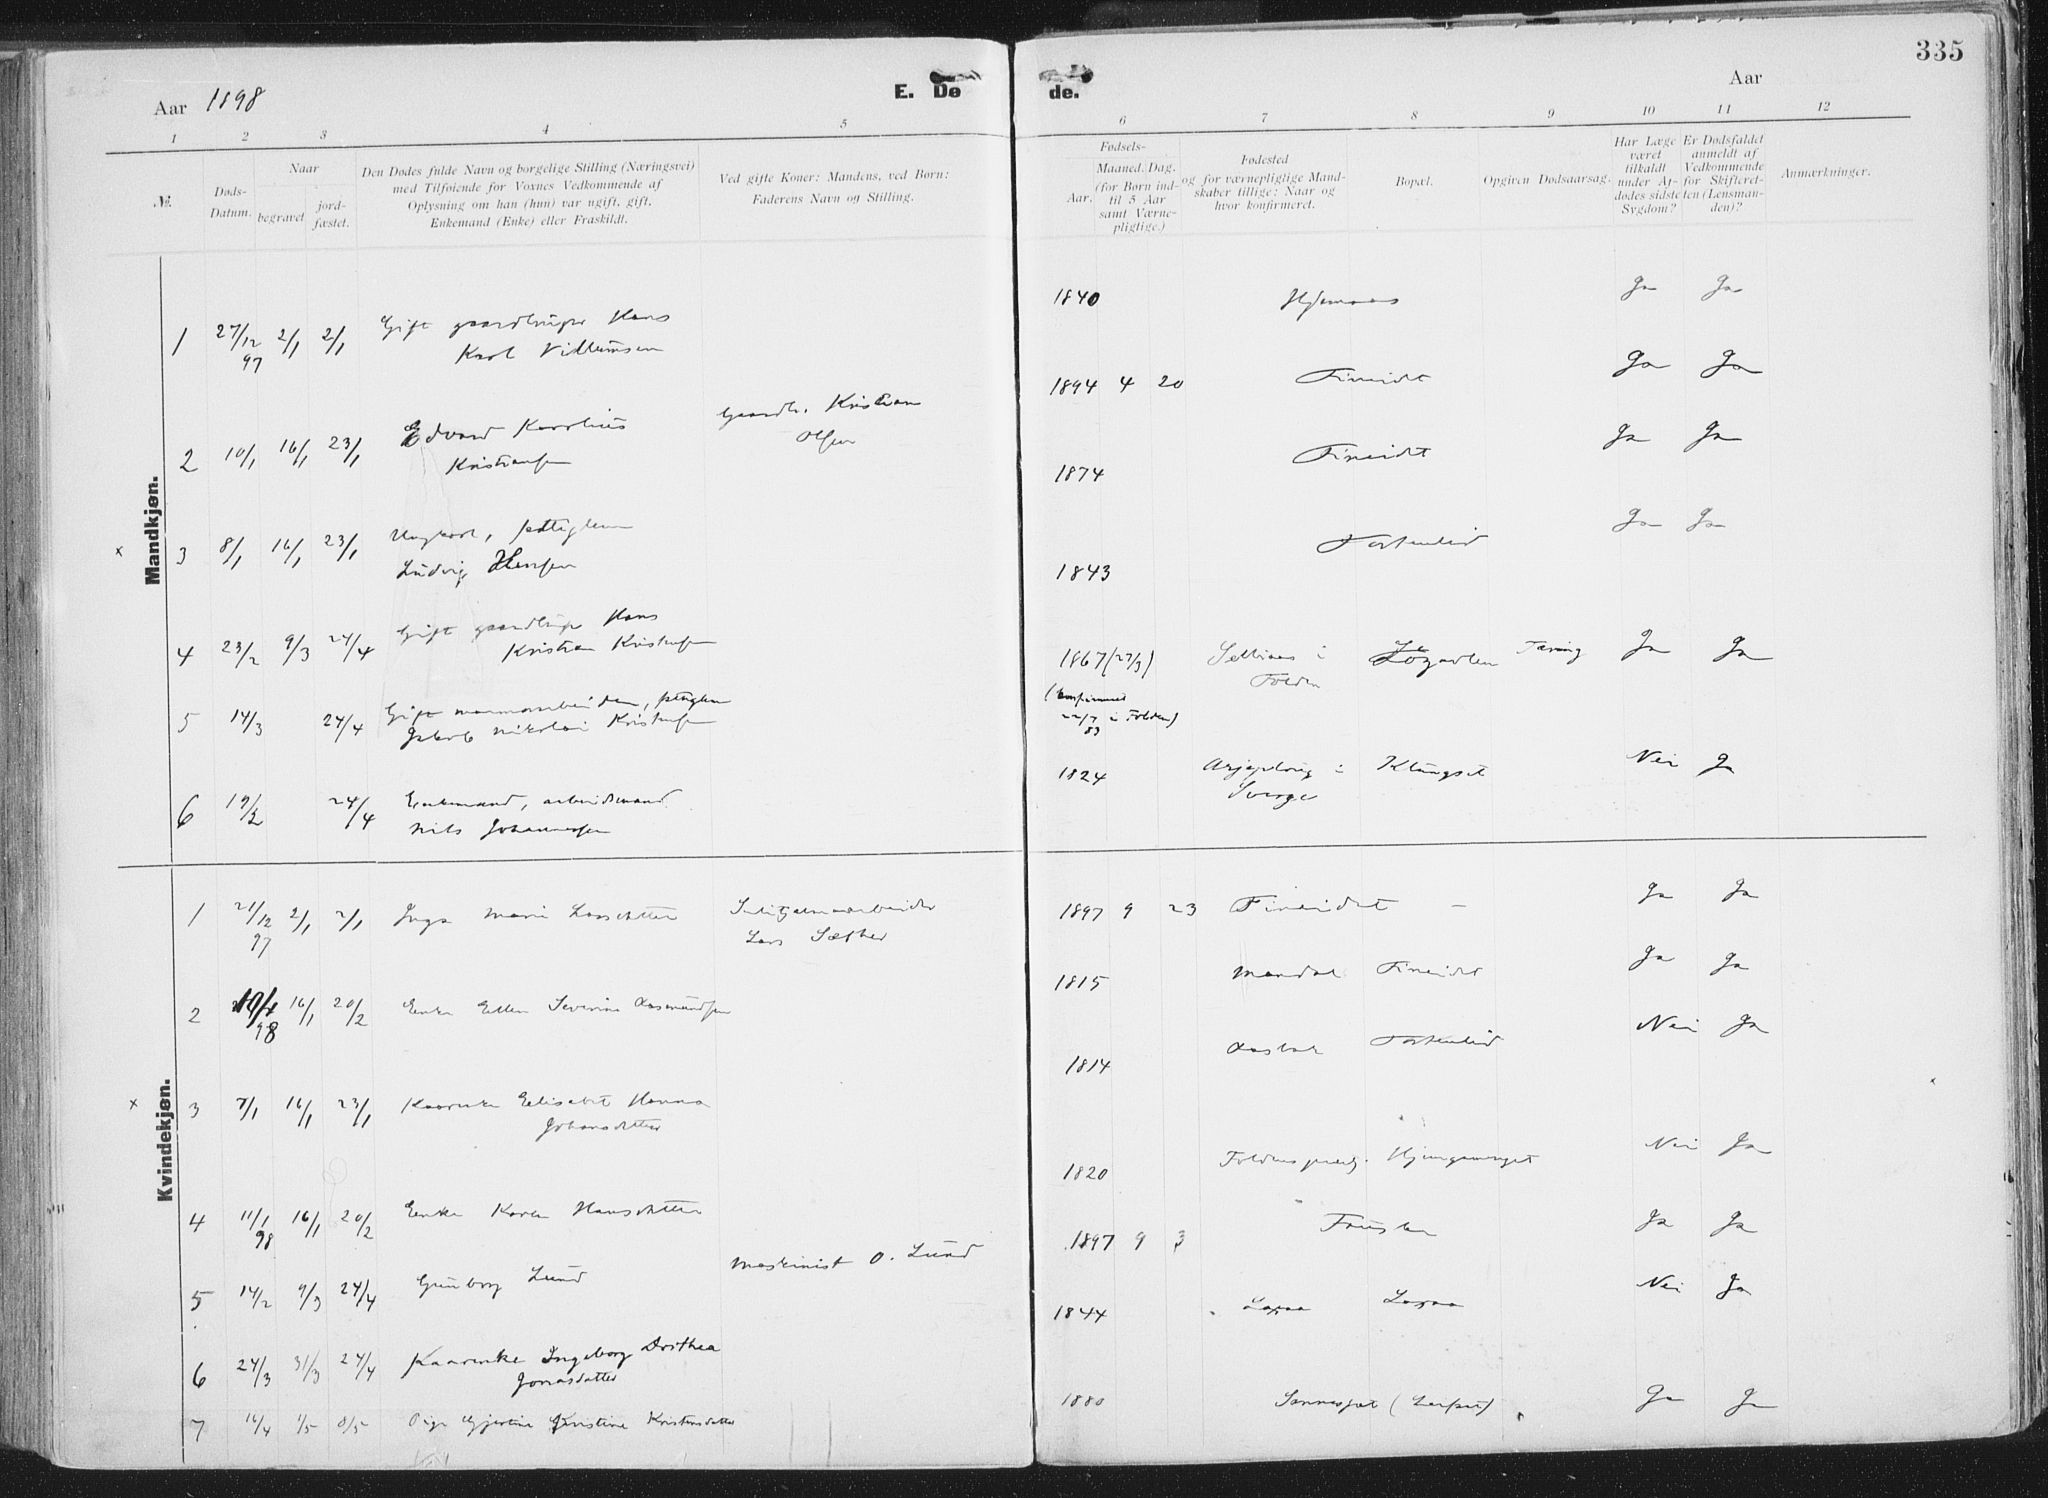 335
Aar 1898
E. Dø
de.
Aar
1 2 3 4 5 6 7 8 9 10 11 12
No.
Døds-Datum.
Naar
begravet
jord-fæstet.
Den Dødes fulde Navn og borgelige Stilling (Næringsvei)
med Tilføiende for Voxnes Vedkommende af
Oplysning om han (hun) var ugift, gift,
Enkemand (Enke) eller Fraskildt.
Ved gifte Koner: Mandens, ved Børn:
Faderens Navn og Stilling.
Fødsels-
Aar.
Maaned. Dag.
(for Børn ind-
til 5 Aar
samt Værne-
pligtige.)
Fødested
og for værnepligtige Mand-
skaber tillige: Naar og
hvor konfirmeret.
Bopæl.
Opgiven Dødsaarsag.
Har Læge
været
tilkaldt
under Af-
dødes sidste
Sygdom?
Er Dødsfaldet
anmeldt af
Vedkommende
for Skifteret-
ten (Lensman-
den)?
Anmærkninger.
Mandkjøn.
1 27/12 97 2/1 2/1 Gift gaardbruger Hans
Karl Villumsen
1840 Ja Ja
2 10/1 16/1 23/1 Edvard Karolius
Kristiansen
Gaardb. Kristian
Olsen
1894 4 20 Fineidet Ja Ja
x 3 8/1 16/1 23/1 Ungkarl,
Ludvig Hansen
1874 Fineidet Ja Ja
4 23/2 9/3 24/4 Gift gaardbruger Hans
Kristian Kristensen
1843 Ja Ja
5 14/3 24/4 Gift
Jakob Nikolai
1867 (27/3)
(konfirmeret
22/7 83 i Folden)
i Folden Tæring Ja Ja
6 19/2 24/4 Enkemand, arbeidsmand
Nils Johannessen
1824 Arjeploug i
Sverge
Klungset Nei Ja
Kvindekjøn.
1 21/12 97 2/1 2/1 Inga Marie Larsdatter
Sulitjelmaarbeider
Lars Sæther
1897 9 23 Fineidet – Ja Ja
2 10/1 98 16/1 20/2 Enke Ellen Severine Aasmundsen
1815 Mandal Fineidet Ja Ja
x 3 7/1 16/1 23/1 Kaarenke Elisabet Hanna
Johansdatter
1814 Nei Ja
4 11/1 98 16/1 20/2 Enke Karen Hansdatter
1820 Nei Ja
5 14/2 9/3 24/4 Gunborg Lund
Maskinist O. Lund
1897 9 3 Fauske Ja Ja
6 24/3 31/3 24/4 Kaarenke Ingeborg Dorthea
Jonasdatter
1844 Nei Ja
7 16/4 1/5 8/5 Pige Gjertine Kristine Kristensdatter
1880 Ja Ja